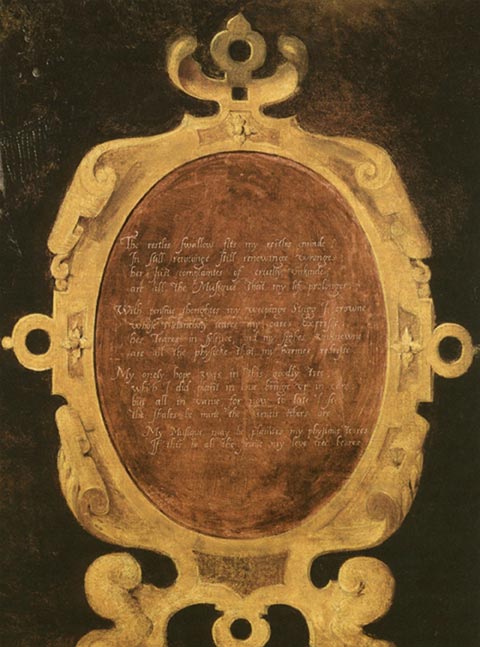 The restles swallow fits my restles minde,
In still revivinge still renewinge wronges;
her Just complaintes of cruelty unkinde,
are all the Musique, that my life prolonges.
With pensive thoughtes my weeping Stagg I crowne
whose Melancholy teares my cares Expresse;
hes Teares in sylence, and my sighes unknowne
are all the physicke that my harmes redresse.
My onely hope was in this goodly tree,
which I did plant in love bringe up in care:
but all in vaine, for now to late I see
the shales be mine, the kernels others are.
My Musique may be plaintes, my physique teares
If this be all the fruite my love tree beares.